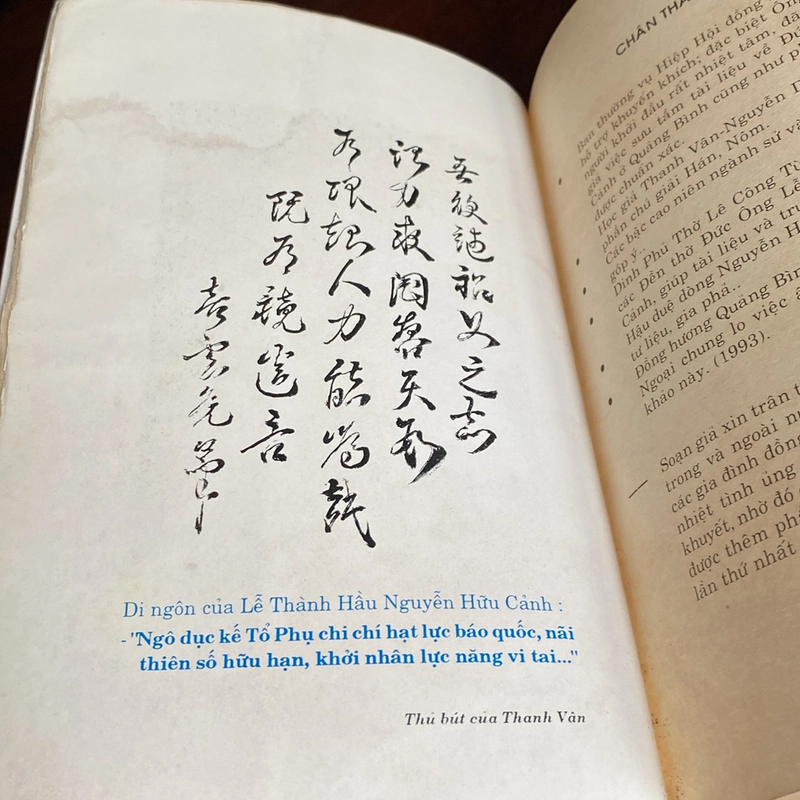 吾欲繼祖父之志
力報國天數
有限人力能為哉
阮有鏡遺言
青雲
Di ngôn của Lễ Thành Hầu Nguyễn Hữu Cảnh :
-"Ngô dục kế Tổ Phụ chi chí hạt lực báo quốc, nãi
thiên số hữu hạn, khởi nhân lực năng vi tai..."
Thủ bút của Thanh Vân
CHÂN THÀ
Ban thường vụ Hiệp Hội đồng
hỗ trợ khuyến khích; đặc biệt Ông
người khởi đầu rất nhiệt tâm, đã
giả việc sưu tầm tài liệu về Đứ
Cảnh ở Quảng Bình cũng như p
được chuẩn xác.
• Học giả Thanh Vân-Nguyễn D
phần chú giải Hán, Nôm.
• Các bậc cao niên ngành sử và
góp ý..
• Dinh Phủ Thờ Lê Công Từ
các Đền thờ Đức Ông Lễ
Cảnh, giúp tài liệu và tru
• Hậu duệ dòng Nguyễn H
tư liệu, gia phả..
• Đồng hương Quảng Bình
Ngoại chung lo việc ấ
khảo này. (1993).
— Soạn giả xin trân t
trong và ngoài n
các gia đình đồn
nhiệt tình ủng
khuyết, nhờ đó
được thêm ph
lần thứ nhất